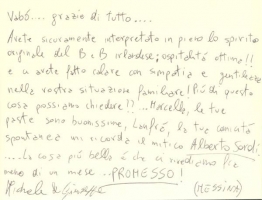 Vabò... grazie di tutto....
Avete sicuramente interpretato in pieno lo spirito
originale del B e B irlandese; ospitalità ottima!!
e ci avete fatto calare con simpatia e gentilezza
nella vostra situazione familiare! Più di questo
cosa possiamo chiedere??... Marcello, le tue
paste sono buonissime, la tua comicità
spontanea mi ricorda il mitico Alberto Sordi
.... La cosa più bella è che ci rivediamo fra
meno di un mese... PROMESSO!
Michele & Giuseppe (MESSINA)